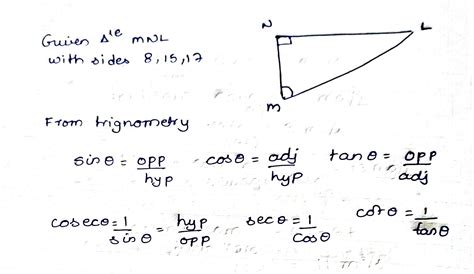 Guiven Δˡᵉ MNL
with sides 8, 15, 17
N
L
M
From trignometry
sinθ = opp/hyp cosθ = adj/hyp tanθ = opp/adj
cosecθ = 1/sinθ = hyp/opp secθ = 1/cosθ cotθ = 1/tanθ